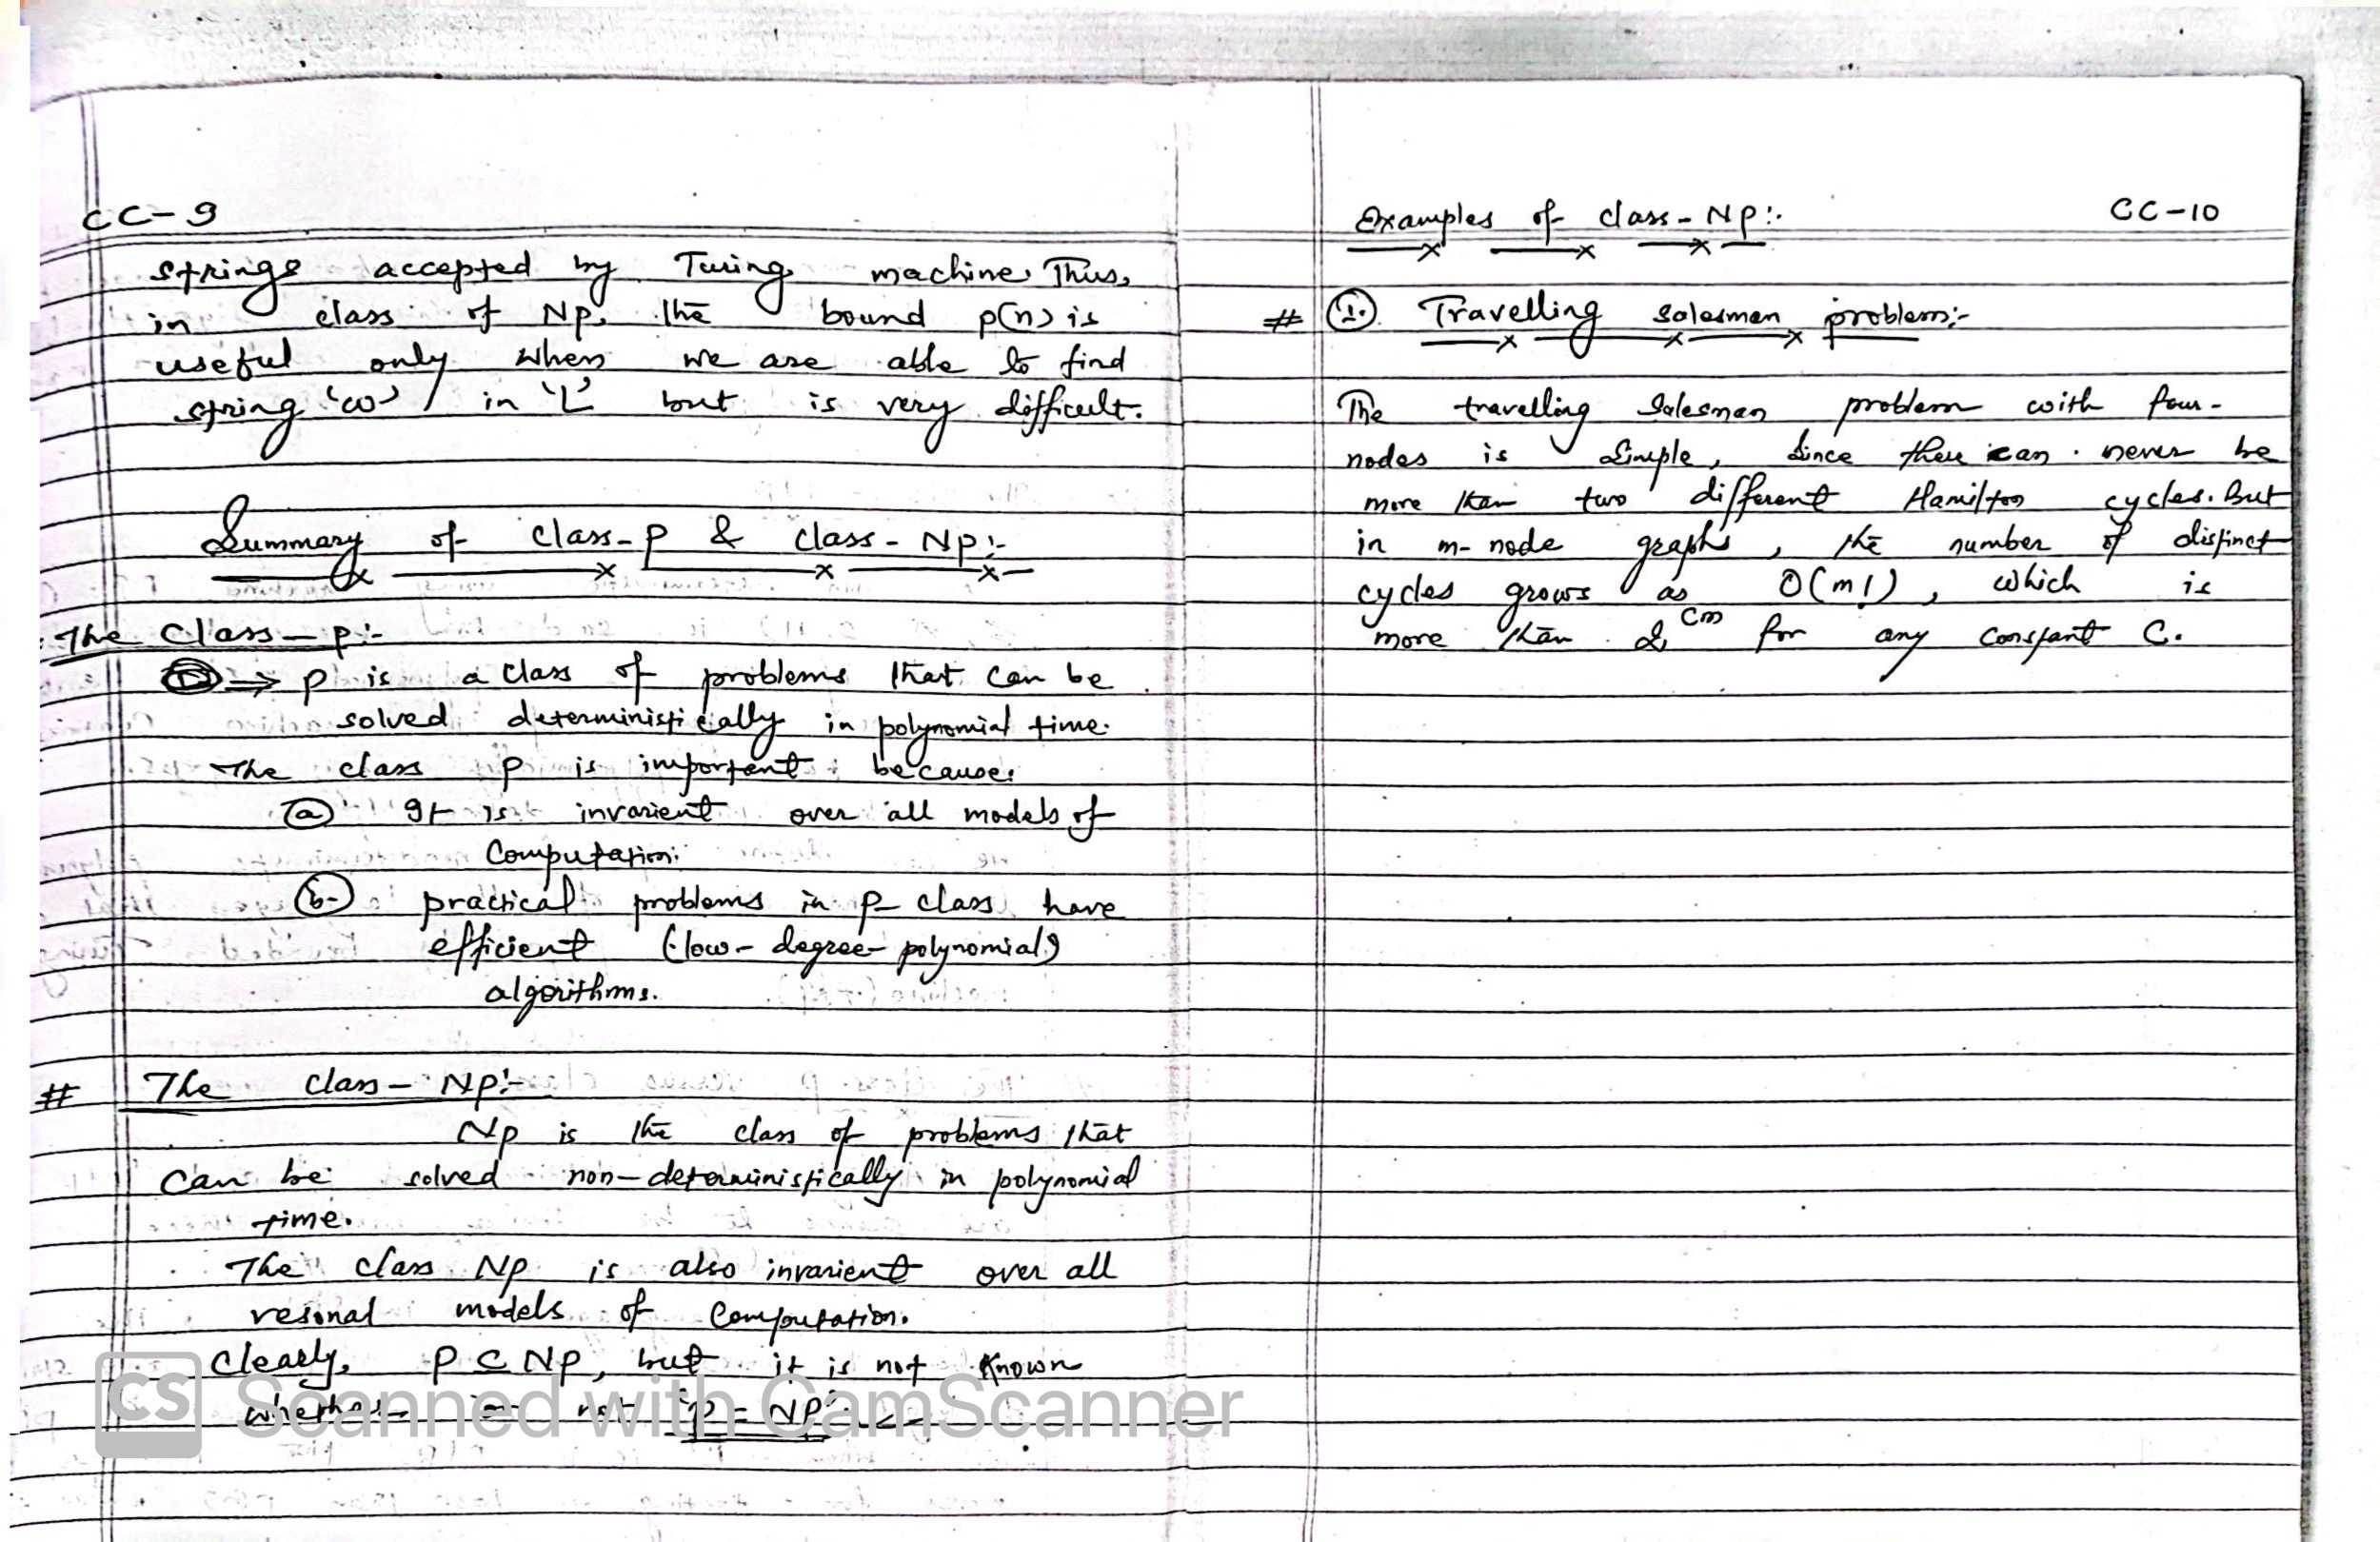 CC-9
strings accepted by Turing machine. Thus,
in class of NP, the bound p(n) is
useful only when we are able to find
string 'w' in 'L' but is very difficult.
Summary of class-P & class-NP:-
The Class-P:-
⇒ P is a class of problems that can be
solved deterministically in polynomial time.
The class P is important because:
(a) It is invarient over all models of
Computation.
(b) practical problems in P-class have
efficient (low-degree-polynomial)
algorithms.
# The class-NP:-
NP is the class of problems that
can be solved non-deterministically in polynomial
time.
The class NP is also invarient over all
resonal models of Computation.
Clearly, P ⊆ NP, but it is not known
whether or not 'P = NP'.
CS Scanned with CamScanner
Examples of class-NP:-
CC-10
# (1.) Travelling salesman problem:-
The travelling Salesman problem with four-
nodes is Simple, Since there can never be
more than two different Hamilton cycles. But
in m-node graphs, the number of distinct
cycles grows as O(m!), which is
more than 2^cm for any constant C.